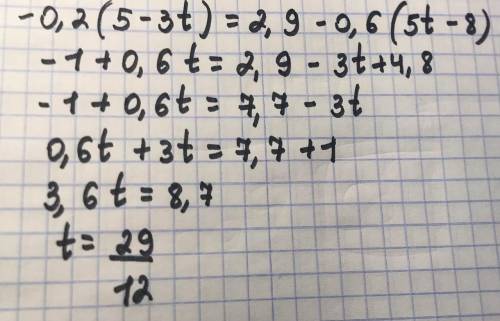 -0,2(5-3t)=2,9-0,6(5t-8)
-1+0,6t=2,9-3t+4,8
-1+0,6t=7,7-3t
0,6t+3t=7,7+1
3,6t=8,7
t=29/12